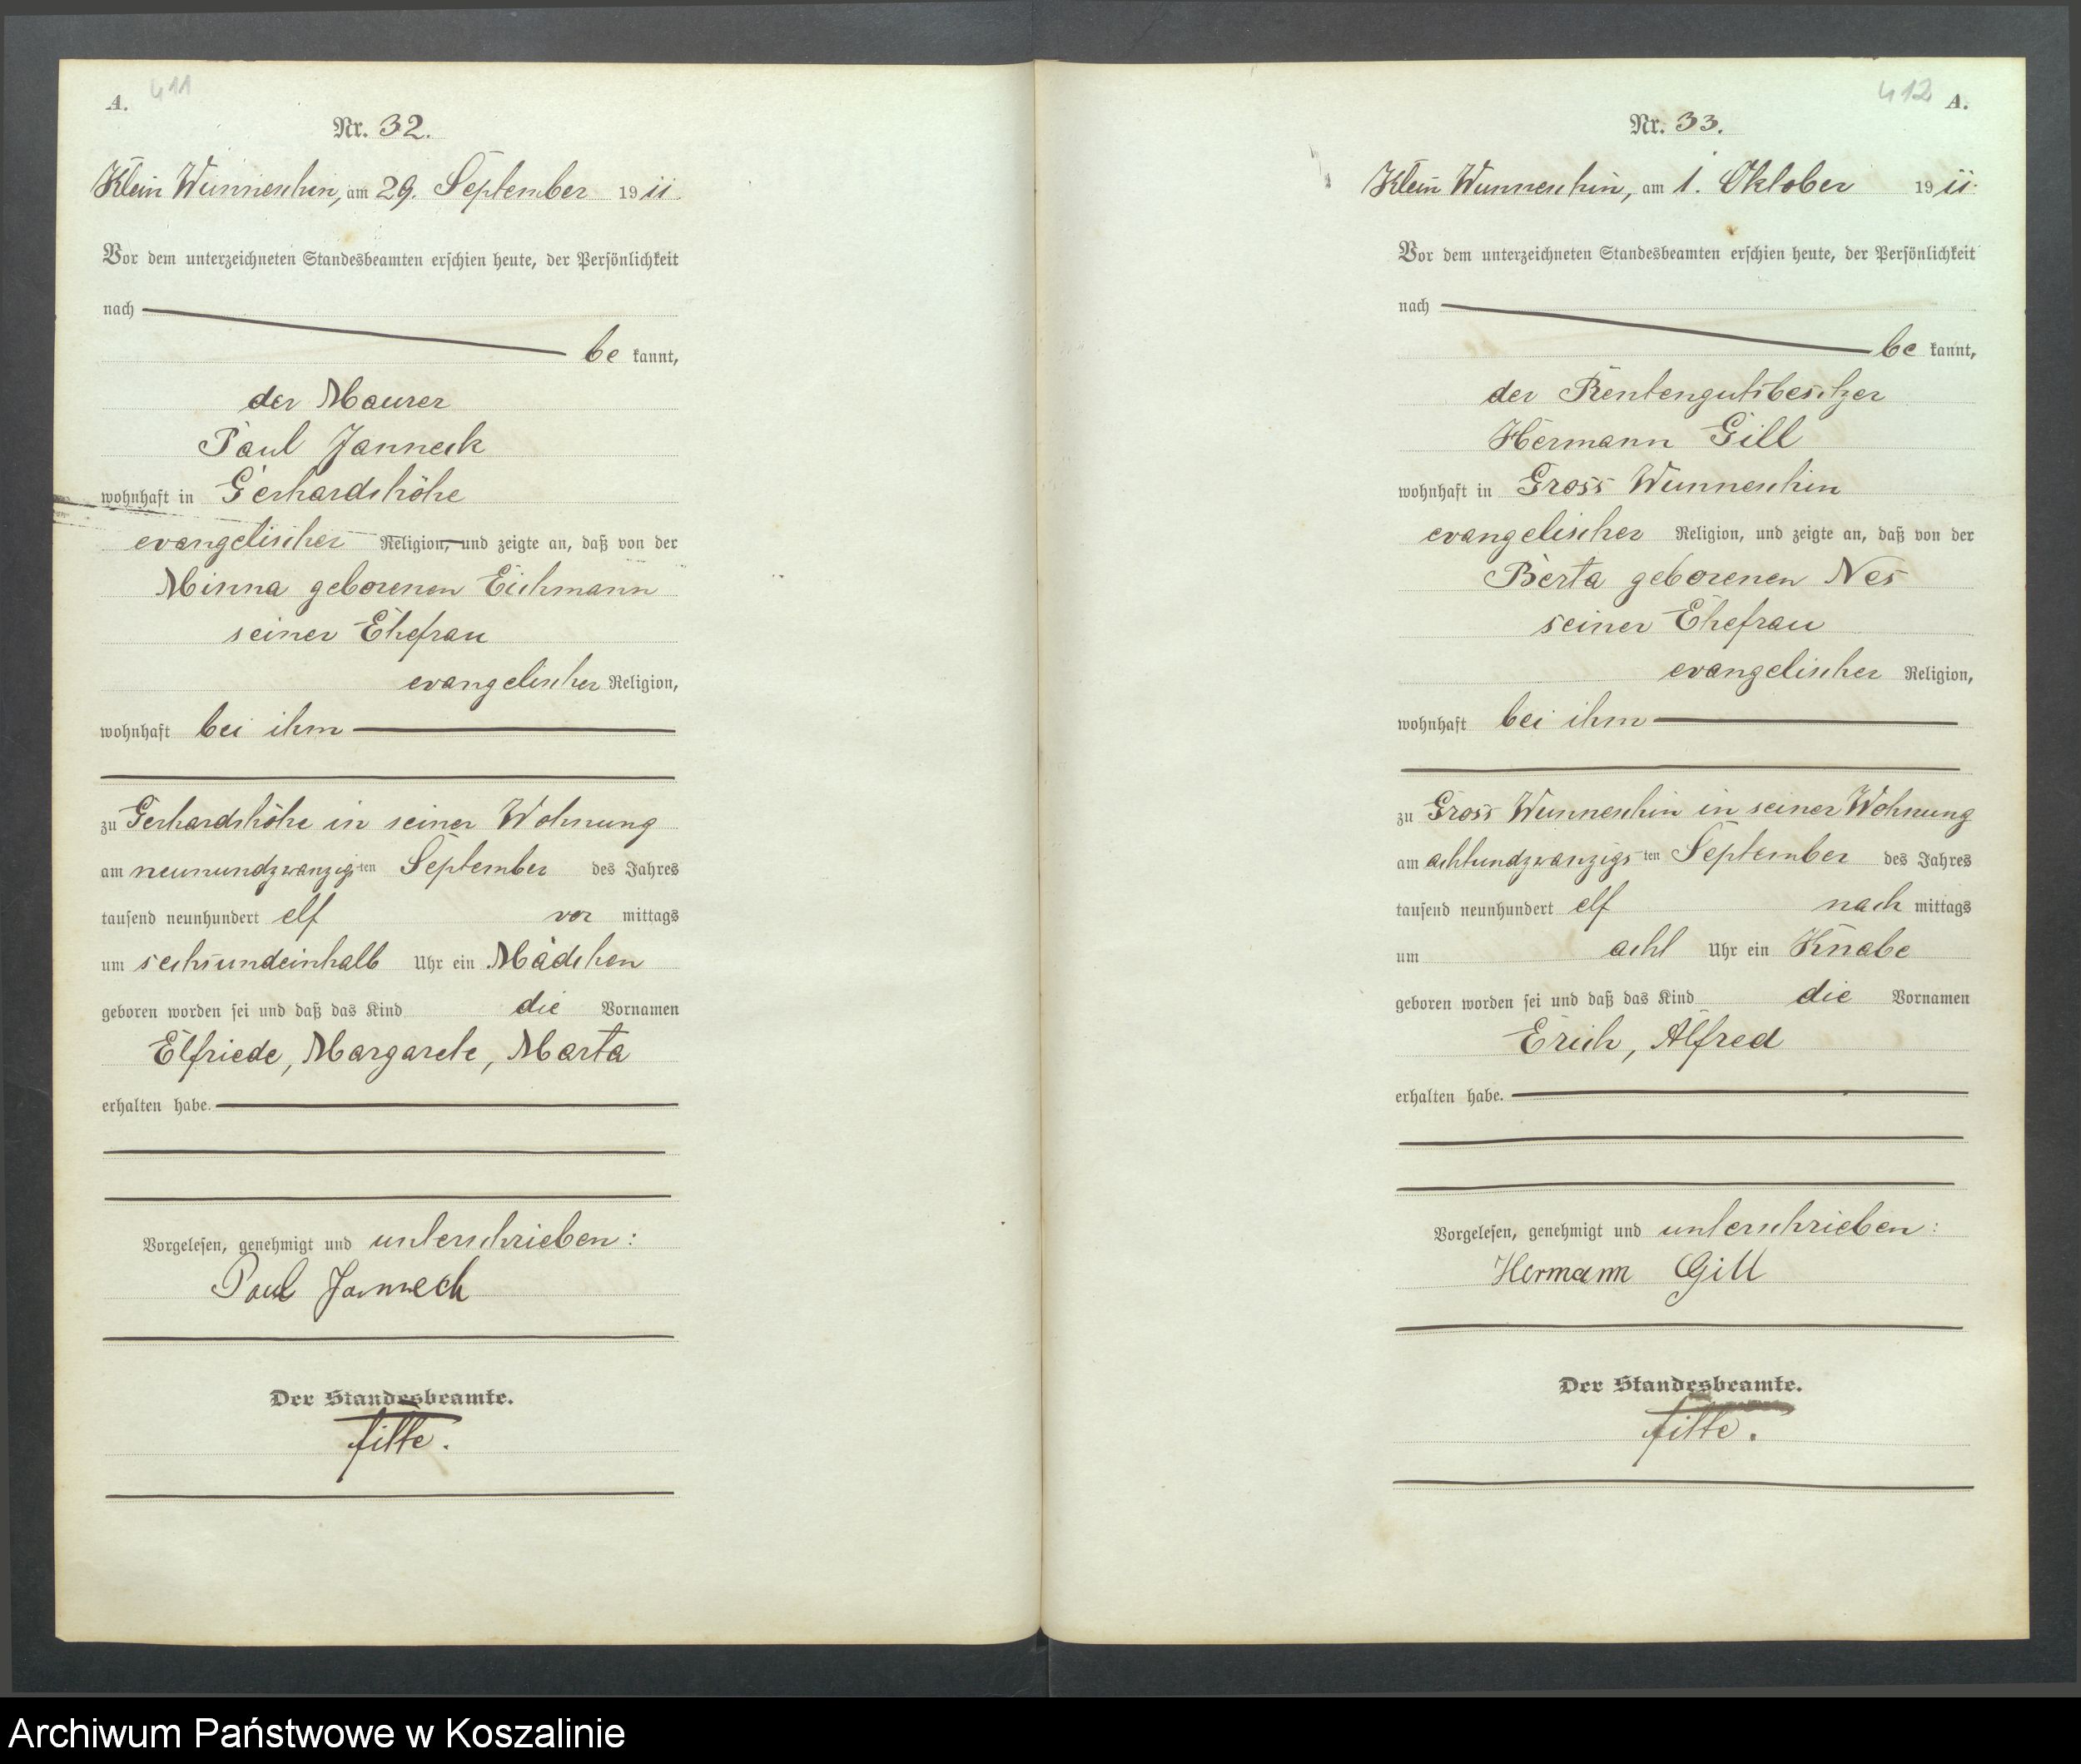 A. 411
Nr. 32.
Klein Wunneschin, am 29. September 1911.
Vor dem unterzeichneten Standesbeamten erschien heute, der Persönlichkeit
nach
be kannt,
der Maurer
Paul Janneck
wohnhaft in Gerhardshöhe
evangelischer Religion, und zeigte an, daß von der
Minna geborenen Eichmann
seiner Ehefrau
evangelischer Religion,
wohnhaft bei ihm
zu Gerhardshöhe in seiner Wohnung
am neunundzwanzigsten September des Jahres
tausend neunhundert elf vor mittags
um sechsundeinhalb Uhr ein Mädchen
geboren worden sei und daß das Kind die Vornamen
Elfriede, Margarete, Marta
erhalten habe.
Vorgelesen, genehmigt und unterschrieben:
Paul Janneck
Der Standesbeamte.
412 A.
Nr. 33.
Klein Wunneschin, am 1. Oktober 1911.
Vor dem unterzeichneten Standesbeamten erschien heute, der Persönlichkeit
nach
be kannt,
der Rentengutsbesitzer
Hermann Gill
wohnhaft in Gross Wunneschin
evangelischer Religion, und zeigte an, daß von der
Berta geborenen Nes
seiner Ehefrau
evangelischer Religion,
wohnhaft bei ihm
zu Gross Wunneschin in seiner Wohnung
am achtundzwanzigsten September des Jahres
tausend neunhundert elf nach mittags
um acht Uhr ein Knabe
geboren worden sei und daß das Kind die Vornamen
Erich, Alfred
erhalten habe.
Vorgelesen, genehmigt und unterschrieben:
Hermann Gill
Der Standesbeamte.
Archiwum Państwowe w Koszalinie